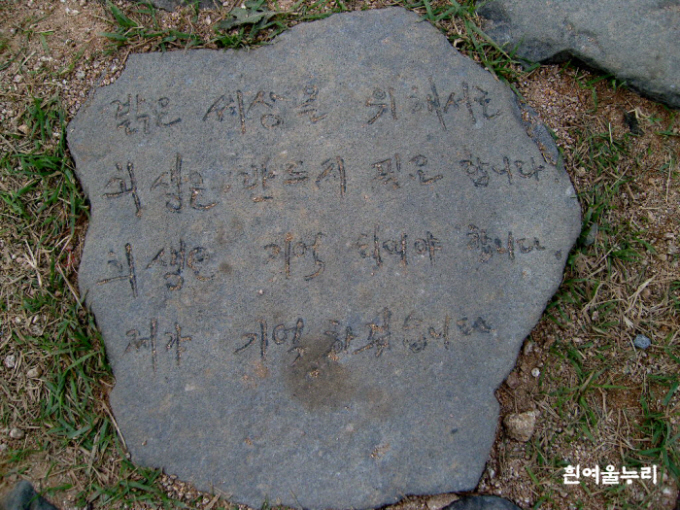 밝은 세상을 위해서는
희생은 반드시 필요 합니다
희생은 기억 되어야 합니다.
제가 기억 하겠습니다
흰여울누리